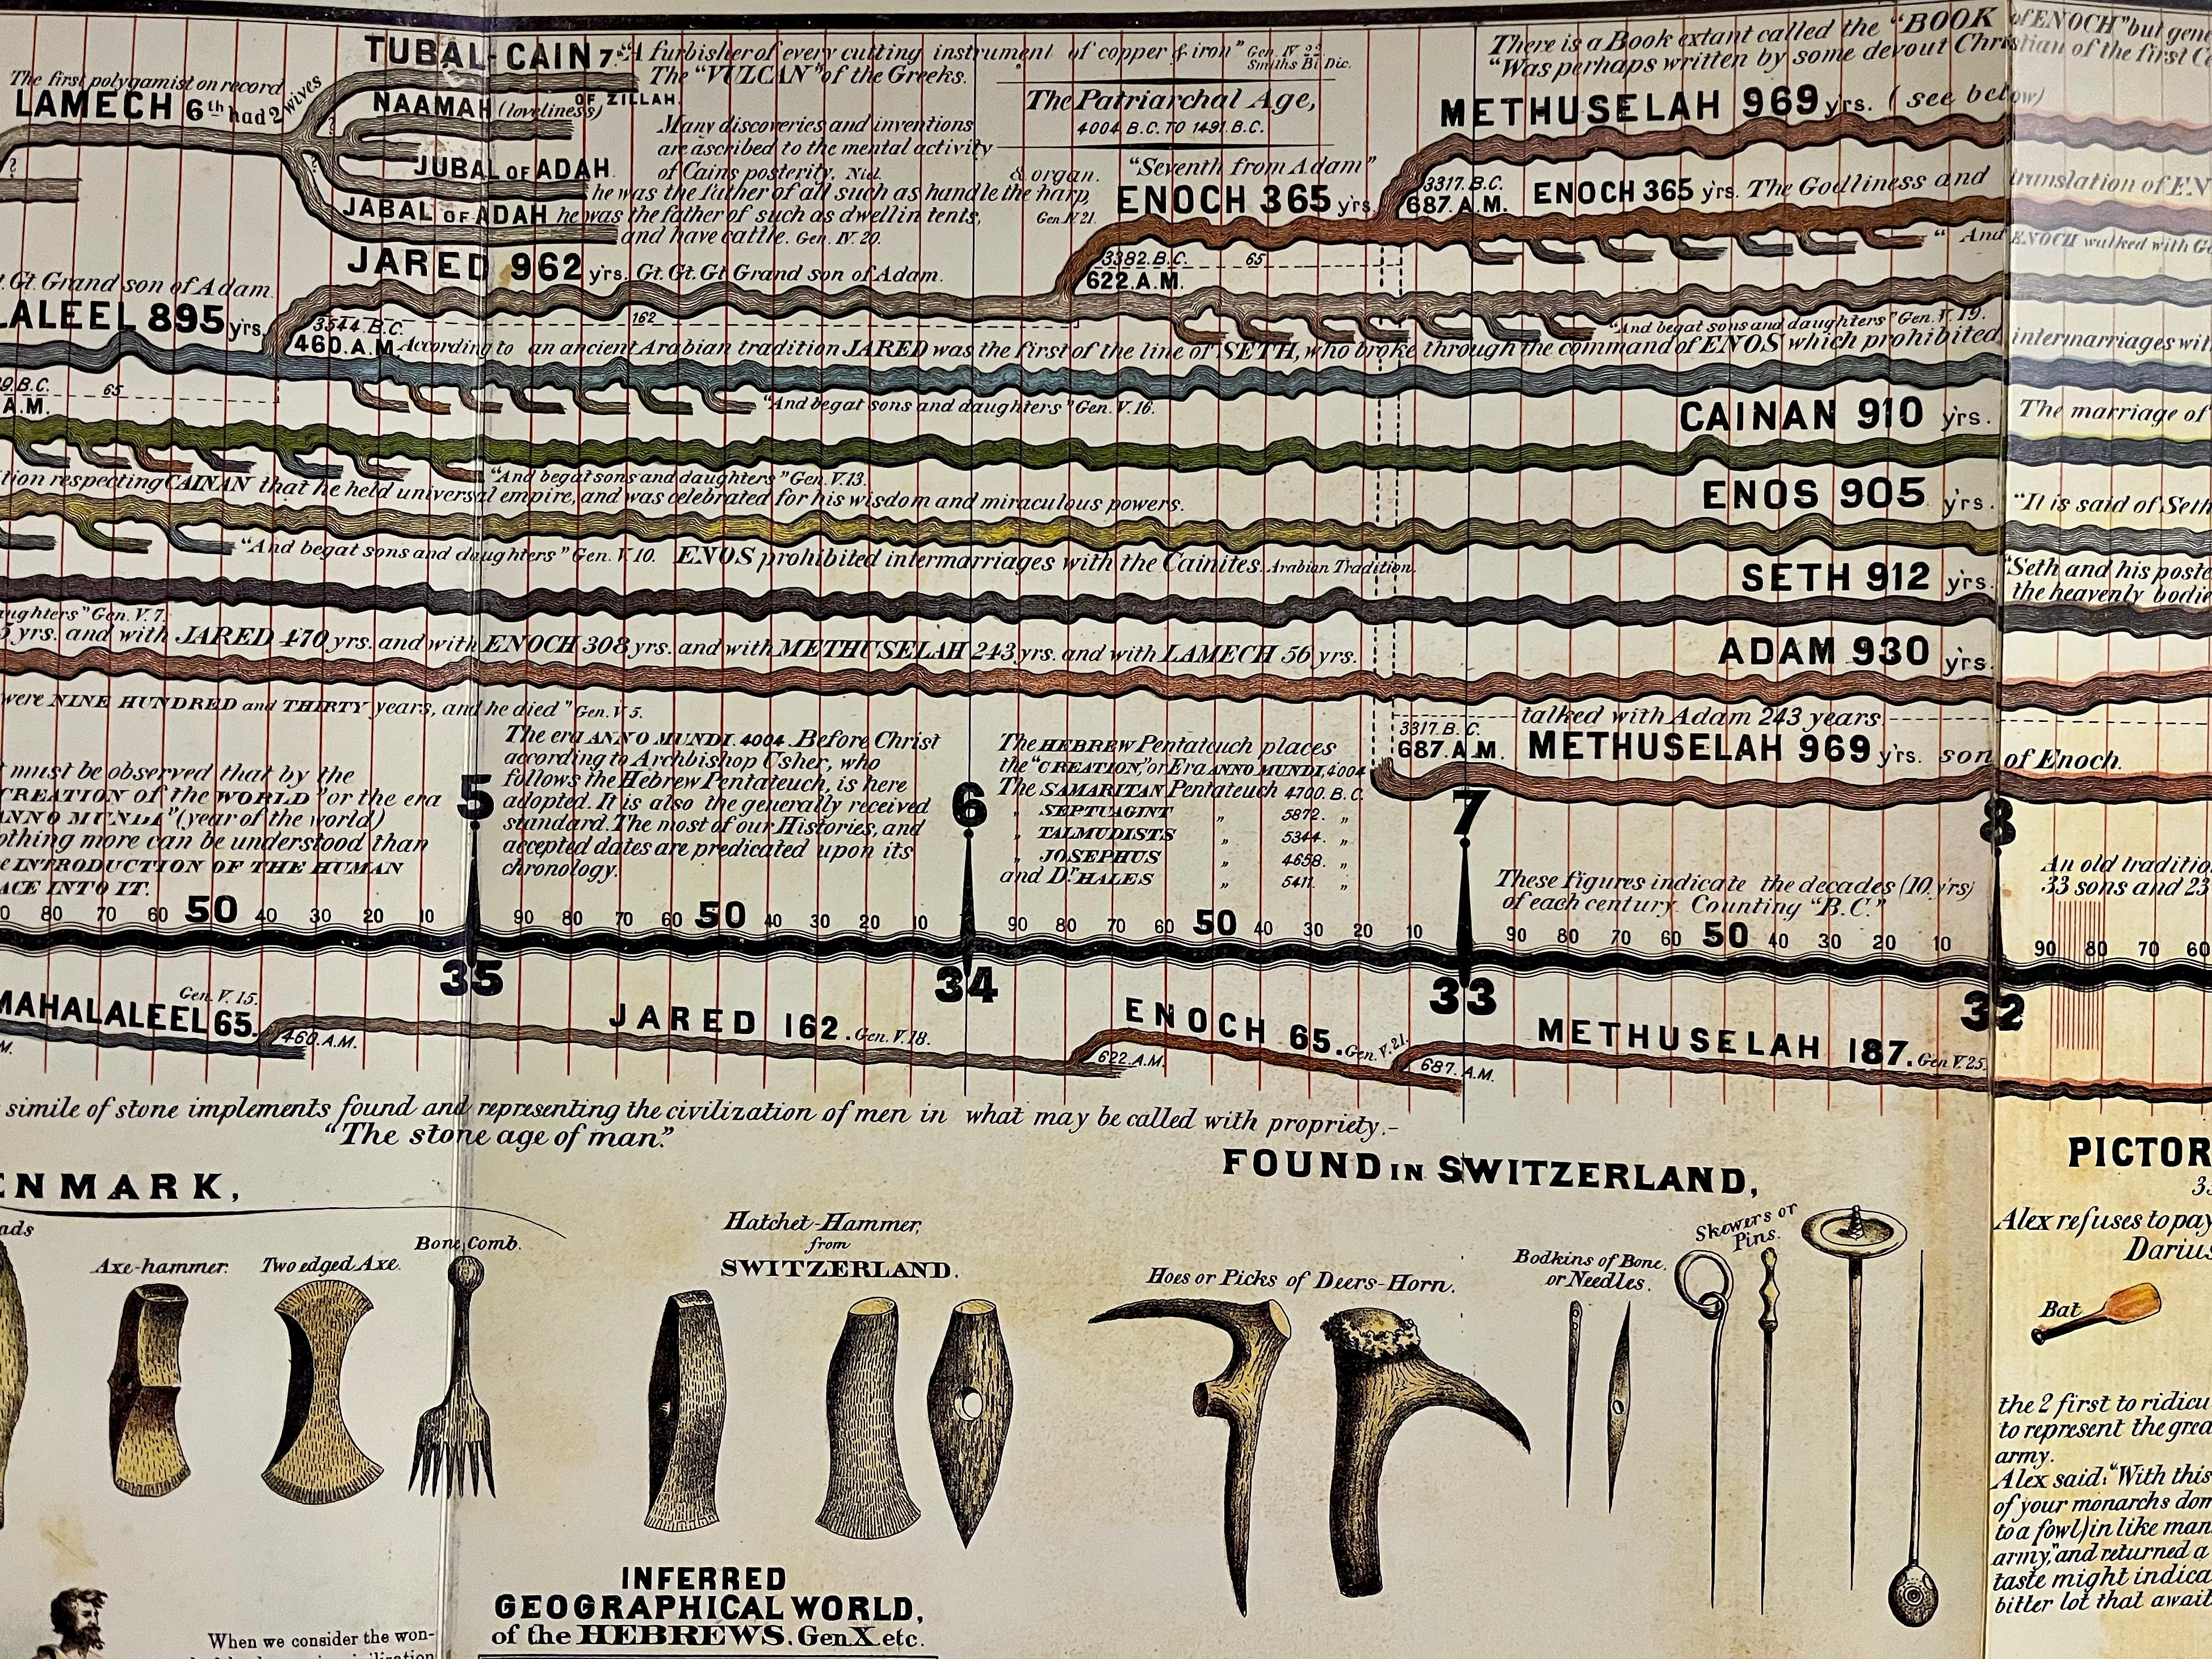 TUBAL-CAIN 7th "A furbisher of every cutting instrument of copper & iron" Gen. IV 22
Smiths Bi. Dic.
The "VULCAN" of the Greeks.
The first polygamist on record
LAMECH 6th had 2 wives
NAAMAH (loveliness)
OF ZILLAH.
?
?
?
JUBAL OF ADAH.
he was the father of all such as handle the harp,
& organ.
Gen. IV. 21.
JABAL OF ADAH he was the father of such as dwell in tents,
and have cattle. Gen. IV. 20.
Many discoveries and inventions
are ascribed to the mental activity
of Cains posterity.
The Patriarchal Age,
4004 B.C. TO 1491 B.C.
"Seventh from Adam"
ENOCH 365 yrs.
There is a Book extant called the "BOOK of ENOCH" but gen
"Was perhaps written by some devout Christian of the first C
METHUSELAH 969 yrs. (see below)
3317. B.C.
687. A.M.
ENOCH 365 yrs. The Godliness and translation of EN
"And ENOCH walked with G
JARED 962 yrs. Gt. Gt. Gt Grand son of Adam.
3382. B.C.
65
622. A.M.
t. Gt. Grand son of Adam.
LALEEL 895 yrs.
3544. B.C.
162
460. A.M. According to an ancient Arabian tradition JARED was the first of the line of SETH, who broke through the command of ENOS which prohibited intermarriages wit
"And begat sons and daughters" Gen. V. 19.
9. B.C.
65
A.M.
"And begat sons and daughters" Gen. V. 16.
CAINAN 910 yrs.
The marriage of
"And begat sons and daughters" Gen. V. 13.
tion respecting CAINAN that he held universal empire, and was celebrated for his wisdom and miraculous powers.
ENOS 905 yrs.
"It is said of Seth
"And begat sons and daughters" Gen. V. 10. ENOS prohibited intermarriages with the Cainites. Arabian Tradition.
SETH 912 yrs.
"Seth and his poste
the heavenly bodie
aughters" Gen. V. 7.
5 yrs. and with JARED 470 yrs. and with ENOCH 308 yrs. and with METHUSELAH 243 yrs. and with LAMECH 56 yrs.
ADAM 930 yrs.
were NINE HUNDRED and THIRTY years, and he died" Gen. V 5.
talked with Adam 243 years.
3317. B.C.
687. A.M.
METHUSELAH 969 yrs. son of Enoch.
t must be observed that by the
CREATION of the WORLD" or the era
ANNO MUNDI" (year of the world)
othing more can be understood than
e INTRODUCTION OF THE HUMAN
ACE INTO IT.
The era ANNO MUNDI. 4004. Before Christ
according to Archbishop Usher, who
follows the Hebrew Pentateuch, is here
adopted. It is also the generally received
standard. The most of our Histories, and
accepted dates are predicated upon its
chronology.
The HEBREW Pentateuch places
the "CREATION," or Era ANNO MUNDI, 4004
The SAMARITAN Pentateuch 4700. B.C.
" SEPTUAGINT " 5872. "
" TALMUDISTS " 5344. "
" JOSEPHUS " 4658. "
and Dr HALES " 5411. "
These figures indicate the decades (10. yrs)
of each century. Counting "B.C."
An old traditio
33 sons and 23
5
6
7
8
0 80 70 60 50 40 30 20 10
90 80 70 60 50 40 30 20 10
90 80 70 60 50 40 30 20 10
90 80 70 60 50 40 30 20 10
90 80 70 60
35
34
33
32
Gen. V. 15.
MAHALALEEL 65.
M.
460. A.M.
JARED 162. Gen. V. 18.
622. A.M.
ENOCH 65. Gen. V. 21.
687. A.M.
METHUSELAH 187. Gen V. 25.
simile of stone implements found and representing the civilization of men in what may be called with propriety.-
"The stone age of man."
ENMARK,
FOUND IN SWITZERLAND,
ads
Axe-hammer.
Two edged Axe.
Bone Comb.
Hatchet-Hammer,
from
SWITZERLAND.
Hoes or Picks of Deers-Horn.
Bodkins of Bone,
or Needles.
Skewers or
Pins.
PICTOR
Alex refuses to pay
Darius
Bat
the 2 first to ridicu
to represent the grea
army.
Alex said: "With this
of your monarchs dom
to a fowl) in like man
army," and returned a
taste might indica
bitter lot that await
INFERRED
GEOGRAPHICAL WORLD,
of the HEBREWS. Gen X. etc.
When we consider the won-